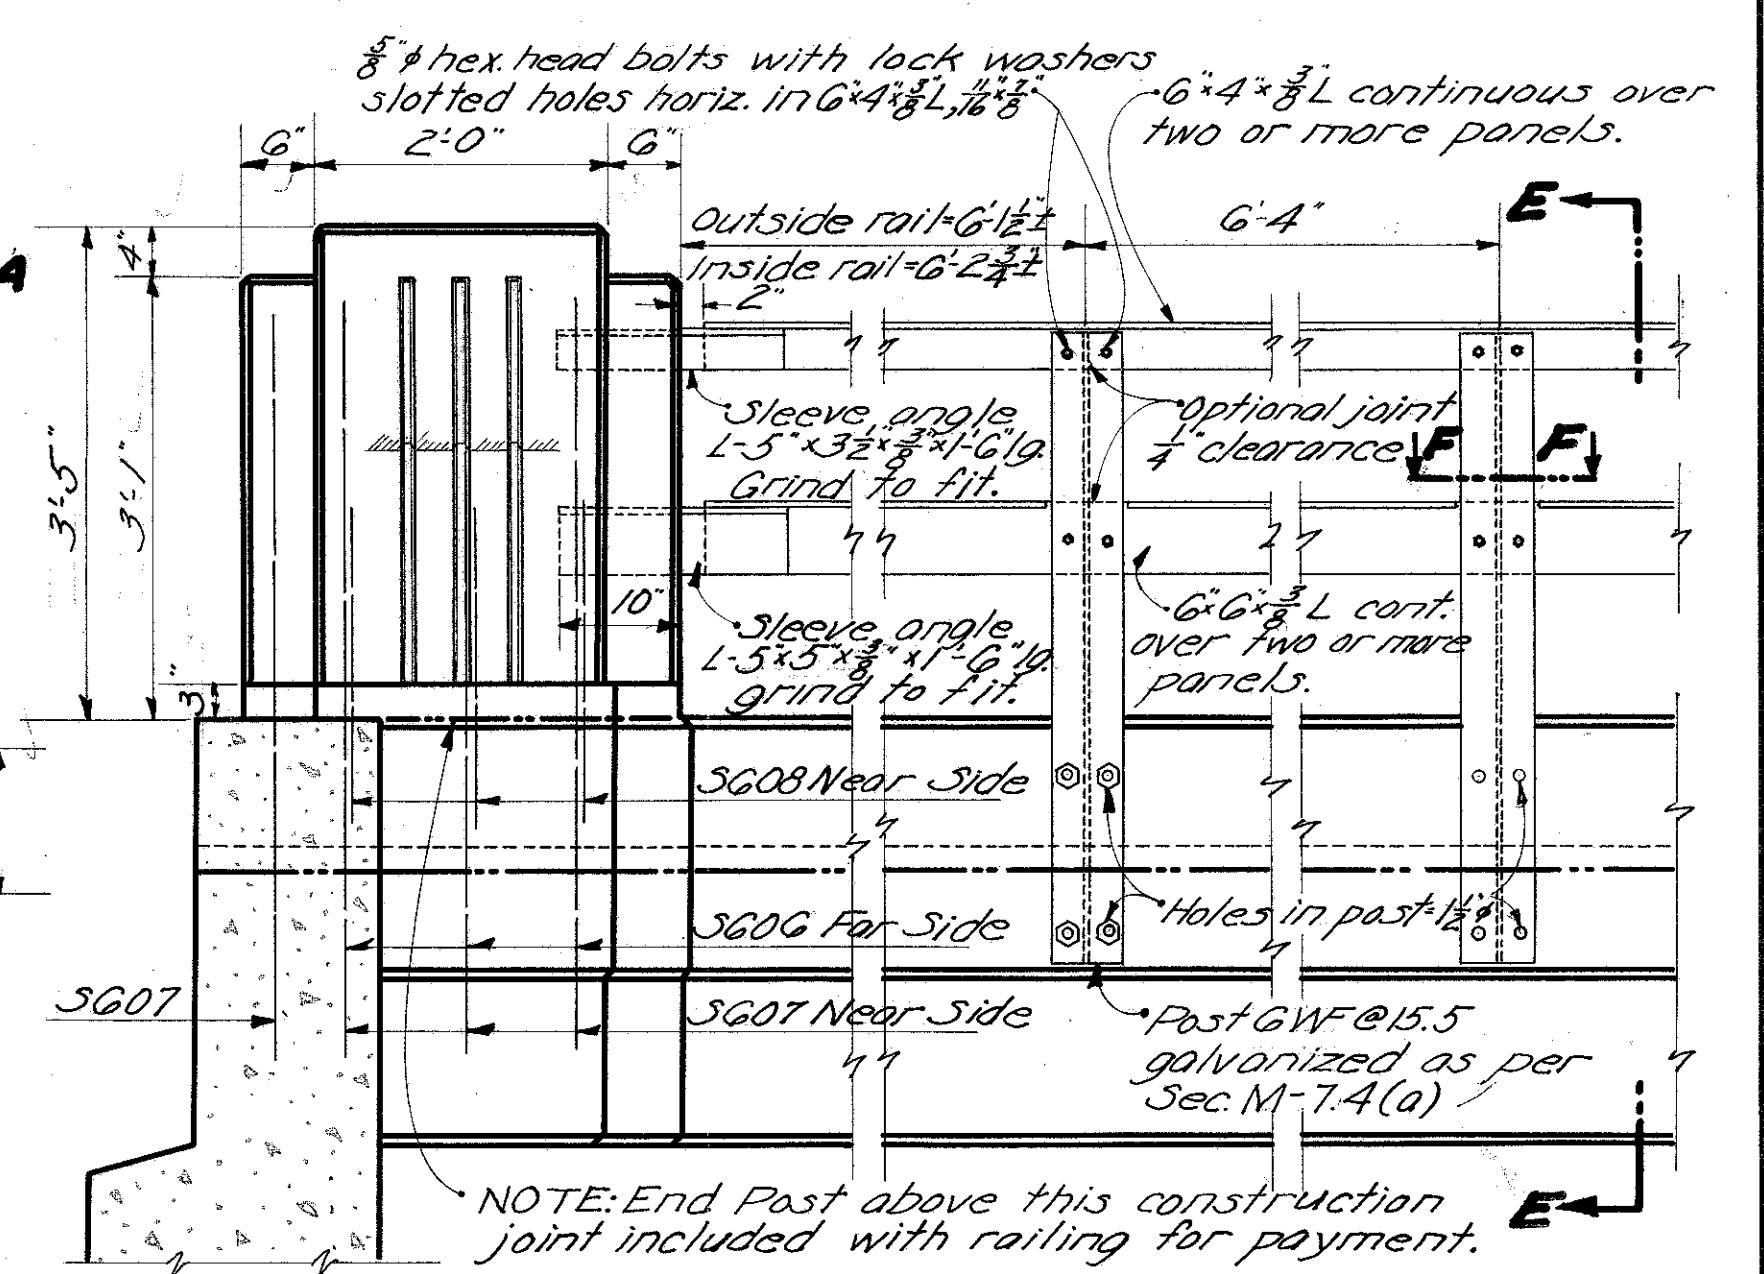 5/8"φ hex. head bolts with lock washers
slotted holes horiz. in 6"x4"x3/8"L, 11/16"x7/8"
6"x4"x3/8"L continuous over
two or more panels.
6"
2'-0"
6"
E
Outside rail=6'-1 1/2"±
6'-4"
Inside rail=6'-2 3/4"±
4"
A
2"
Sleeve angle
L-5"x3 1/2"x3/8"x1'-6"lg.
Grind to fit.
Optional joint
1/4" clearance
F
F
3'-5"
3'-1"
10"
Sleeve angle
L-5"x5"x3/8"x1'-6"lg.
grind to fit.
6"x6"x3/8"L cont.
over two or more
panels.
3"
S608 Near Side
Holes in post=1 1/2"φ
S606 Far Side
S607
S607 Near Side
Post 6WF@15.5
galvanized as per
Sec. M-7.4(a)
NOTE: End Post above this construction
joint included with railing for payment.
E